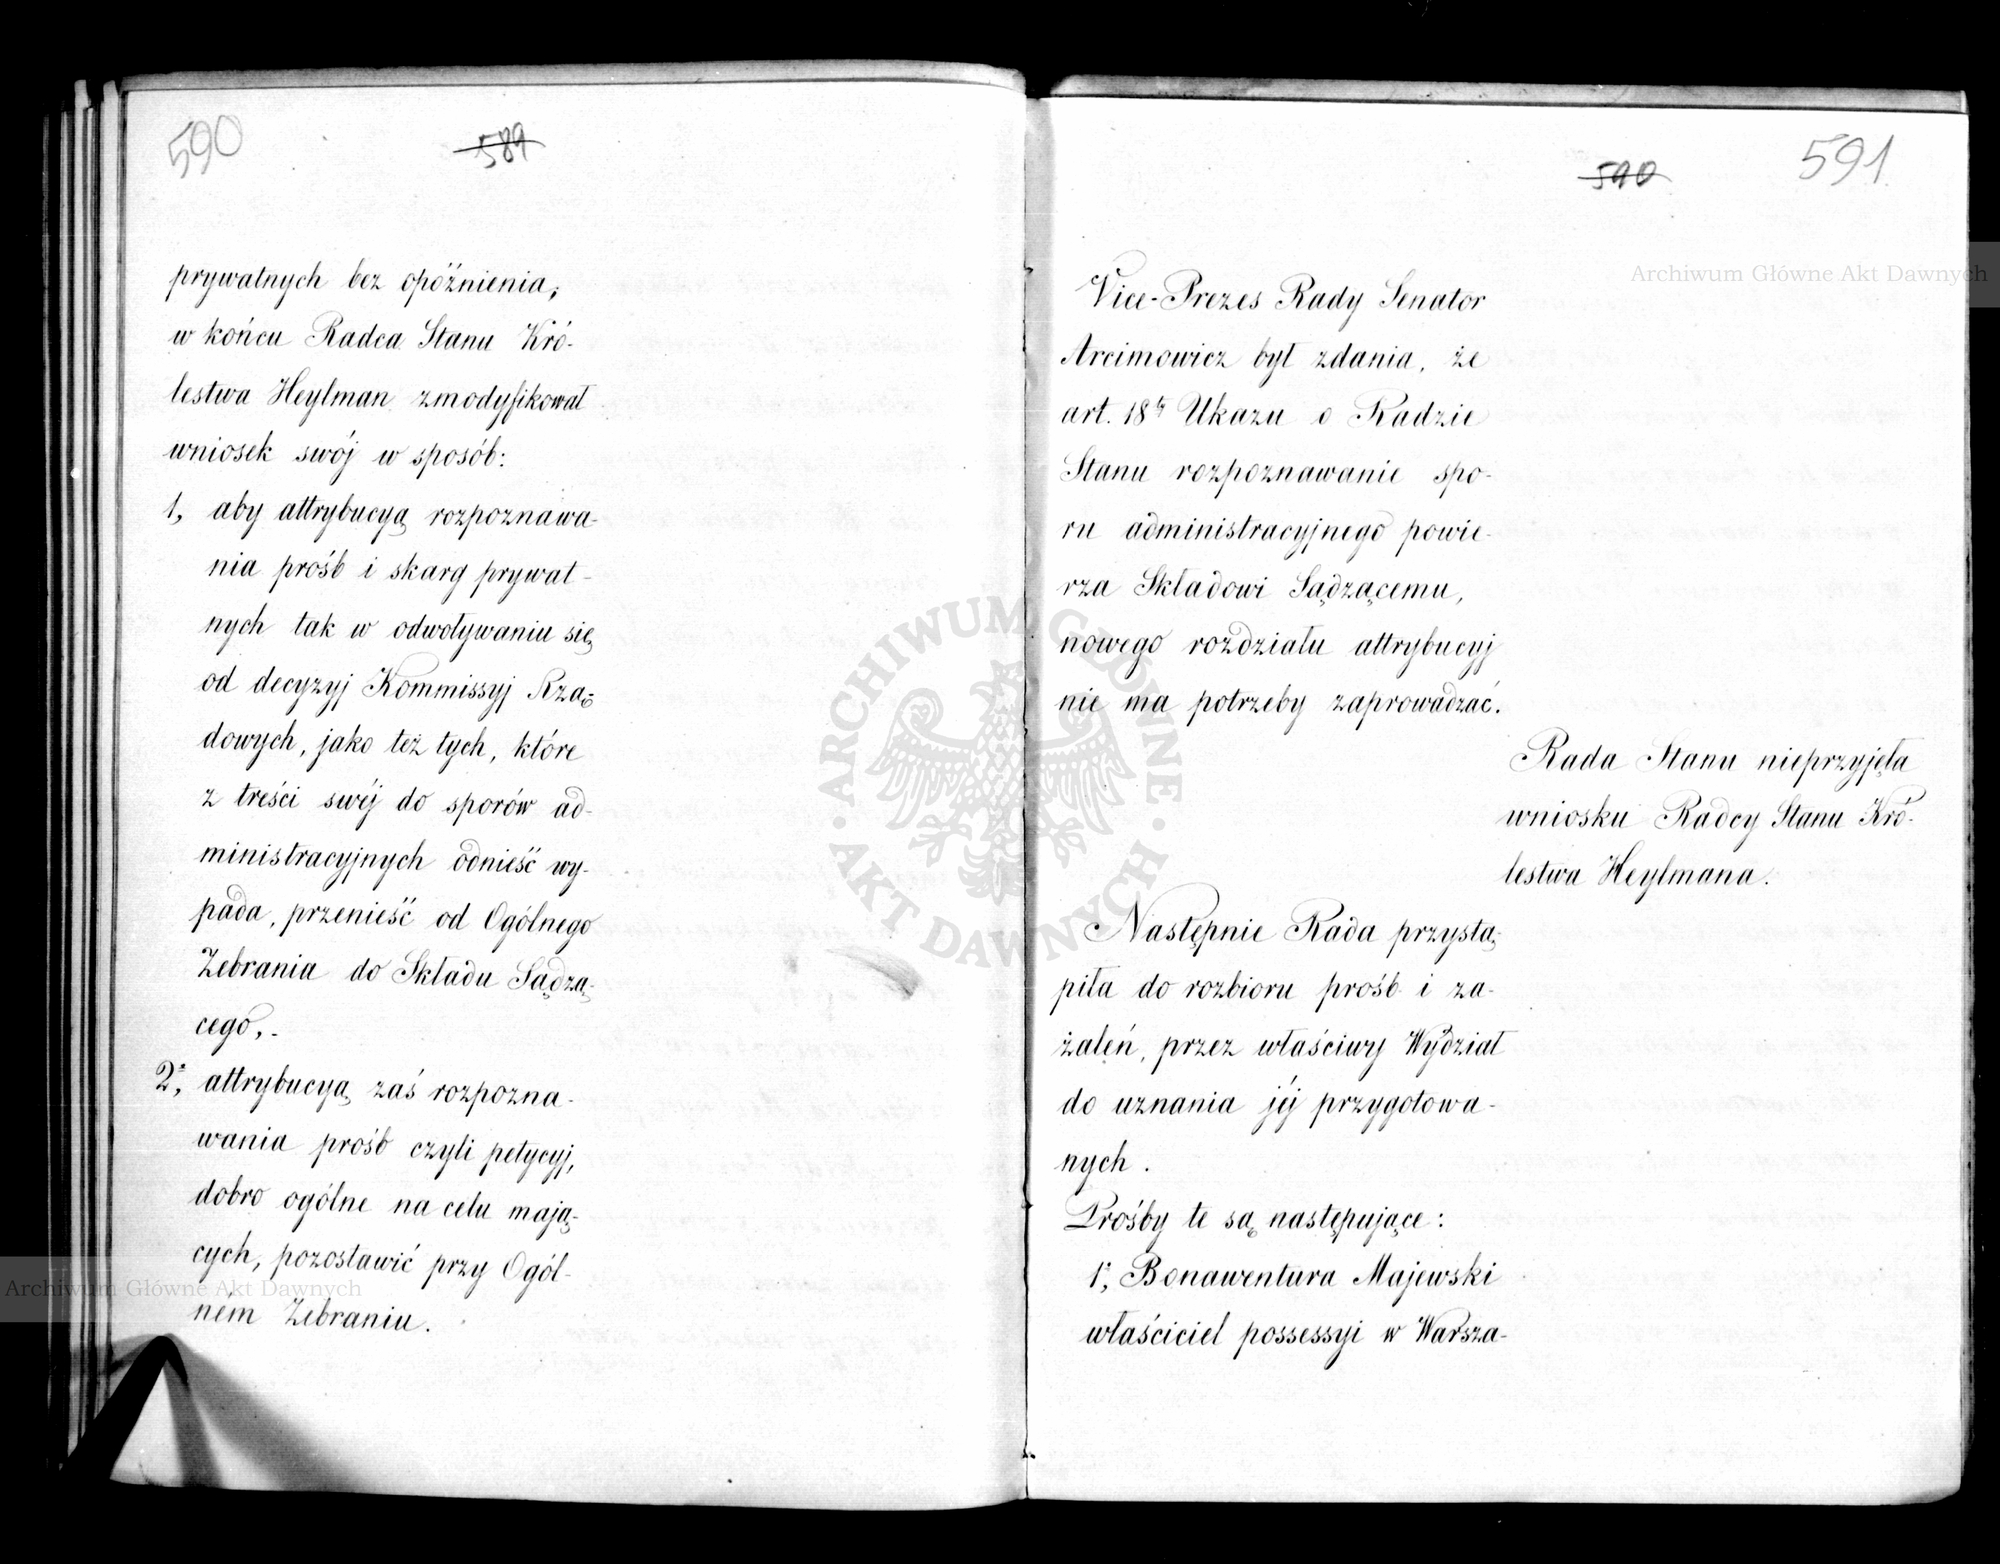 590
589
prywatnych bez opóźnienia;
w końcu Radca Stanu Kró-
lestwa Heylman zmodyfikował
wniosek swój w sposób:
1, aby attrybucyą rozpoznawa-
nia prośb i skarg prywat-
nych tak w odwoływaniu się
od decyzyj Kommissyj Rzą-
dowych, jako też tych, które
z treści swéj do sporów ad-
ministracyjnych odnieść wy-
pada, przenieść od Ogólnego
Zebrania do Składu Sądzą-
cego,.
2, attrybucyą zaś rozpozna-
wania prośb czyli petycyj,
dobro ogólne na celu mają-
cych, pozostawić przy Ogól-
ném Zebraniu.
590
591
Vice-Prezes Rady Senator
Arcimowicz był zdania, że
art. 18ty Ukazu o Radzie
Stanu rozpoznawanie spo-
ru administracyjnego powie-
rza Składowi Sądzącemu,
nowego rozdziału attrybucyj
nie ma potrzeby zaprowadzać.
Rada Stanu nieprzyjęła
wniosku Radcy Stanu Kró-
lestwa Heylmana.
Następnie Rada przystą-
piła do rozbioru prośb i za-
żaleń, przez właściwy Wydział
do uznania jéj przygotowa-
nych.
Prośby te są następujące:
1, Bonawentura Majewski
właściciel possessyi w Warsza-
Archiwum Główne Akt Dawnych
Archiwum Główne Akt Dawnych
ARCHIWUM GŁÓWNE
AKT DAWNYCH